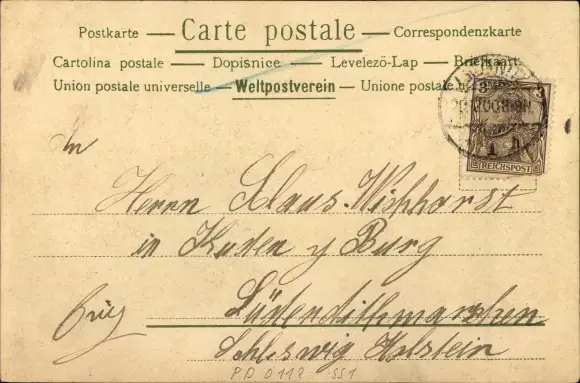 Postkarte — Carte postale — Correspondenzkarte
Cartolina postale — Dopisnice — Levelező-Lap — Briefkaart
Union postale universelle — Weltpostverein — Unione postale
3 3
REICHSPOST
An
Herrn Klaus Wichhorst
in Kuden y Burg
Südendithmarschen
Schleswig Holstein
PD 0112 551